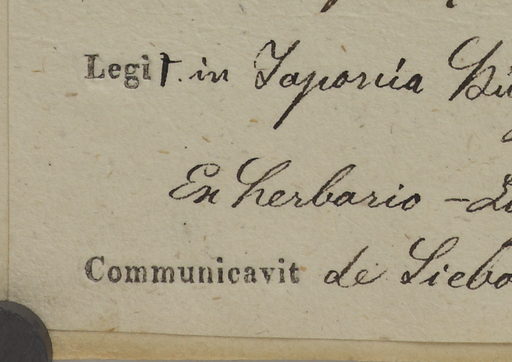 Legit. in Japonia
Ex herbario
Communicavit de Siebo